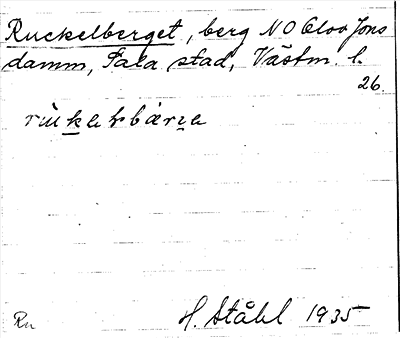 Ruckelberget, berg NO Olov Jons
damm, Sala stad, Västm. l.
26.
Ru
H. Ståhl 1935